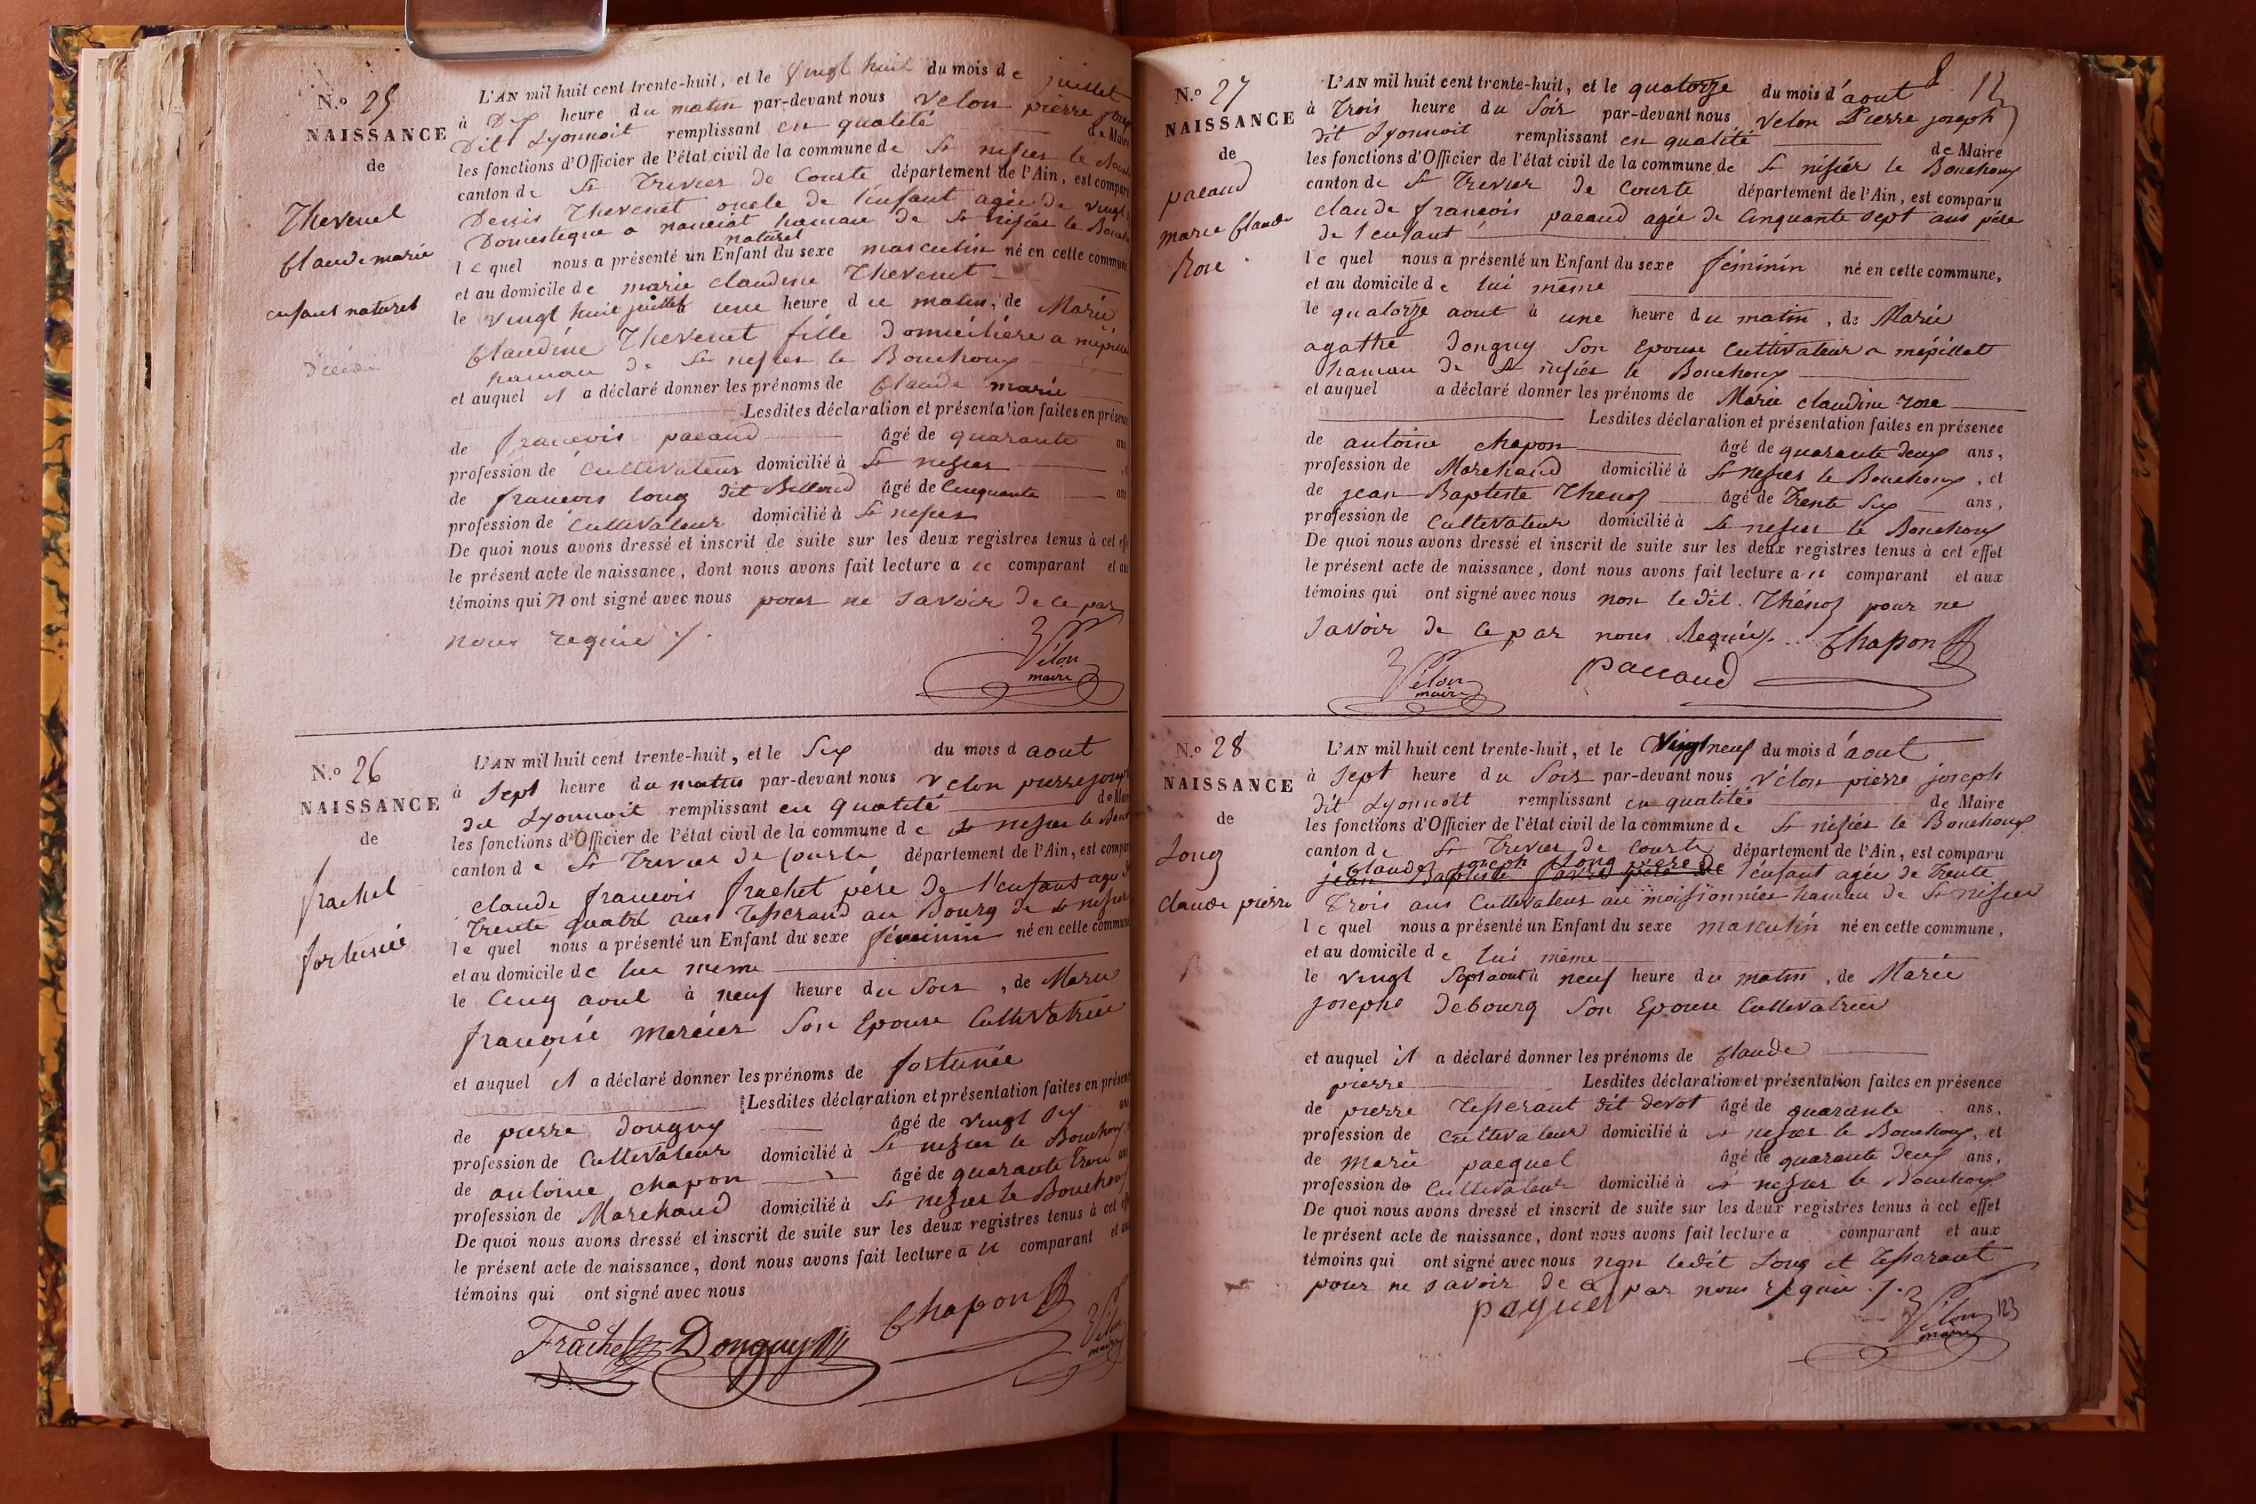 N.º 25
NAISSANCE
de
Thevenet
Claude marie
enfant naturel
L'AN mil huit cent trente-huit, et le vingt huit du mois de juillet
à Dix heure du matin par-devant nous velon pierre
Dit Lyonnoit remplissant en qualité de Maire
les fonctions d'Officier de l'état civil de la commune de St nisier le
canton de St Trevier de Courte département de l'Ain, est comparu
Denis Thevenet oncle de l'enfant agée de vingt
Domestique a hameau de St nisier le
naturel
le quel nous a présenté un Enfant du sexe masculin né en cette commune
et au domicile de marie claudine Thevenet
le vingt huit juillet à une heure du matin, de Marie
Claudine Thevenet fille domiciliére a
hameau de St nisier le Bouchoux
et auquel il a déclaré donner les prénoms de Claude marie
Lesdites déclaration et présentation faites en présence
de francois pacaud âgé de quarante ans
profession de Cultivateur domicilié à St nisier
de francois long dit Billoud âgé de Cinquante ans
profession de Cultivateur domicilié à St nisier
De quoi nous avons dressé et inscrit de suite sur les deux registres tenus à cet effet
le présent acte de naissance, dont nous avons fait lecture a ce comparant et aux
témoins qui n ont signé avec nous pour ne savoir de ce par
nous requie
Vélon
maire
N.º 26
NAISSANCE
de
frachet
fortunée
L'AN mil huit cent trente-huit, et le Six du mois d aout
à sept heure du matin par-devant nous velon pierre joseph
dit Lyonnoit remplissant en qualité de Maire
les fonctions d'Officier de l'état civil de la commune de St nisier le
canton de St Trevier de Courte département de l'Ain, est comparu
claude francois frachet pére de l'enfant agé de
trente quatre ans Tisserand au Bourg de St nisier
le quel nous a présenté un Enfant du sexe féminin né en cette commune
et au domicile de lui meme
le Cinq aout à neuf heure du Soir, de Marie
françoise mercier Son Epouse Cultivatrice
et auquel il a déclaré donner les prénoms de fortunée
Lesdites déclaration et présentation faites en présence
de pierre donguy âgé de vingt six ans
profession de Cultivateur domicilié à St nisier le Bouchoux
de antoine chapon âgé de quarante trois ans
profession de Marchand domicilié à St nisier le Bouchoux
De quoi nous avons dressé et inscrit de suite sur les deux registres tenus à cet effet
le présent acte de naissance, dont nous avons fait lecture a ce comparant et aux
témoins qui ont signé avec nous
Frachet Donguy Chapon Vélon
maire
12
N.º 27
NAISSANCE
de
pacaud
marie Claude
Rose
L'AN mil huit cent trente-huit, et le quatorze du mois d'aout
à Trois heure du Soir par-devant nous Velon Pierre joseph
dit Lyonnoit remplissant en qualité de Maire
les fonctions d'Officier de l'état civil de la commune de St nisier le Bouchoux
canton de St Trevier de Courte département de l'Ain, est comparu
claude françois pacaud agée de Cinquante sept ans pére
de l'enfant
le quel nous a présenté un Enfant du sexe féminin né en cette commune,
et au domicile de lui même
le quatorze aout à une heure du matin, de Marie
agathe donguy Son Epouse Cultivateur a mépillat
hameau de St nisier le Bouchoux
et auquel a déclaré donner les prénoms de Marie claudine rose
Lesdites déclaration et présentation faites en présence
de antoine chapon âgé de quarante deux ans,
profession de Marchand domicilié à St nisier le Bouchoux, et
de jean Baptiste Thenoz âgé de Trente Six ans,
profession de Cultivateur domicilié à St nisier le Bouchoux
De quoi nous avons dressé et inscrit de suite sur les deux registres tenus à cet effet
le présent acte de naissance, dont nous avons fait lecture a ce comparant et aux
témoins qui ont signé avec nous non le dit Thénoz pour ne
Savoir de ce par nous Requis. Chapon
Vélon
maire
paccaud
N.º 28
NAISSANCE
de
Long
claude pierre
L'AN mil huit cent trente-huit, et le Vingt neuf du mois d'aout
à sept heure du Soir par-devant nous Vélon pierre joseph
dit Lyonnoit remplissant en qualité de Maire
les fonctions d'Officier de l'état civil de la commune de St nisier le Bouchoux
canton de St Trevier de Courte département de l'Ain, est comparu
Claude joseph Long pere de
jean Baptiste pére de l'enfant agée de Trente
Trois ans Cultivateur au moissonnier hameau de St nisier
le quel nous a présenté un Enfant du sexe masculin né en cette commune,
et au domicile de lui même
le vingt Sept aout à neuf heure du matin, de Marie
josephe debourg Son Epouse Cultivatrice
et auquel il a déclaré donner les prénoms de Claude
pierre Lesdites déclaration et présentation faites en présence
de pierre Tisserant dit devot âgé de quarante ans,
profession de Cultivateur domicilié à St nisier le Bouchoux, et
de marie pacquel âgé de quarante deux ans,
profession de Cultivateur domicilié à St nisier le Bouchoux
De quoi nous avons dressé et inscrit de suite sur les deux registres tenus à cet effet
le présent acte de naissance, dont nous avons fait lecture a comparant et aux
témoins qui ont signé avec nous non ledit Long et Tisserant
pour ne savoir de ce par nous requis
paquel
Vélon
maire
123